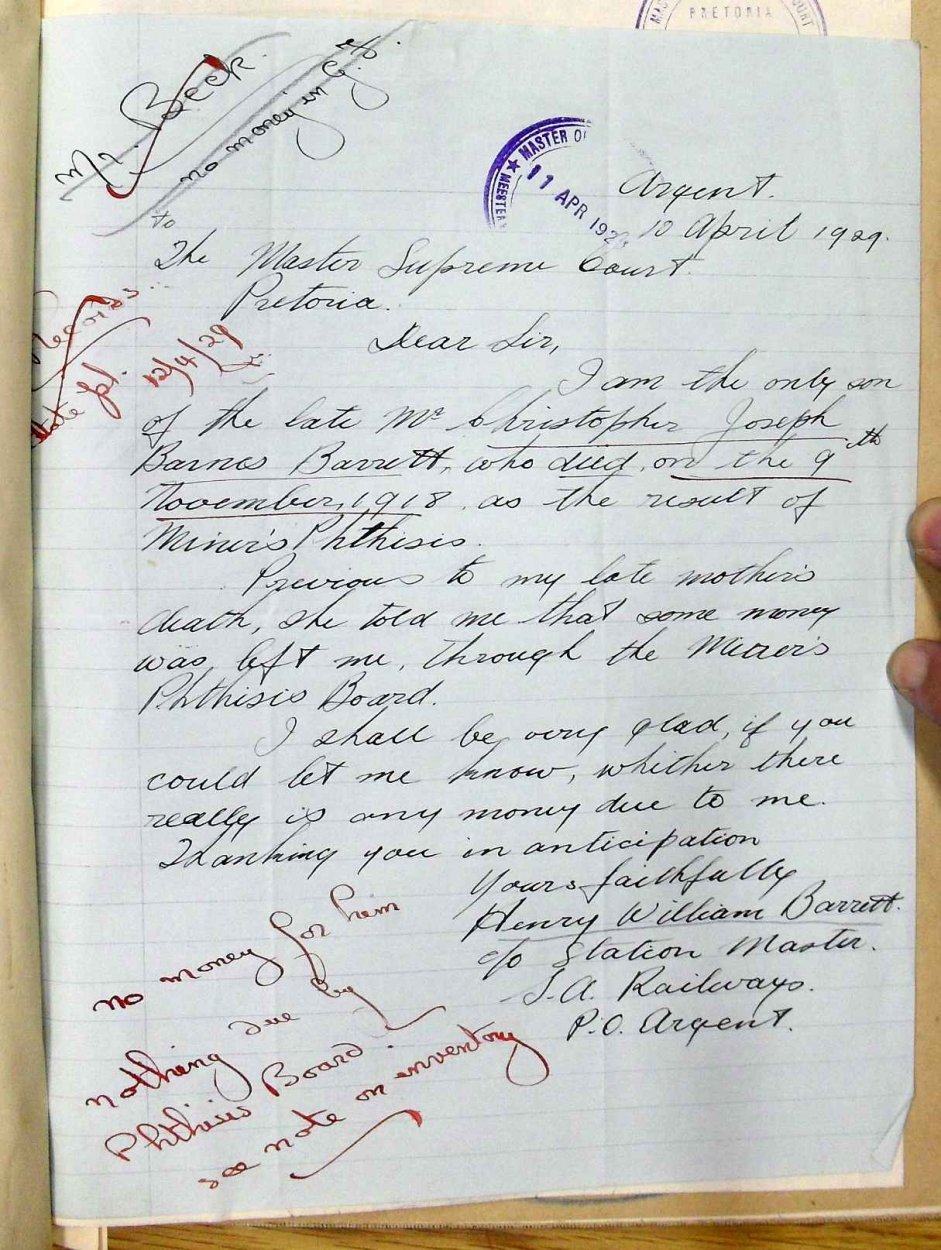 PRETORIA
Mr. Beck.
no money in G.F.
★ MASTER O
MEESTER
11 APR 192
Argent.
10 April 1929.
to
The Master Supreme Court.
Pretoria.
Records
12/4/29
Dear Sir,
I am the only son
of the late Mr Christopher Joseph
Barnes Barrett, who died on the 9th
November, 1918, as the result of
Miner's Phthisis.
Previous to my late mother's
death, she told me that some money
was left me, through the Miner's
Phthisis Board.
I shall be very glad, if you
could let me know, whether there
really is any money due to me.
Thanking you in anticipation
Yours faithfully
Henry William Barrett.
c/o Station Master.
S.A. Railways.
P.O. Argent.
no money for him
nothing due by
Phthisis Board.
see note on inventory